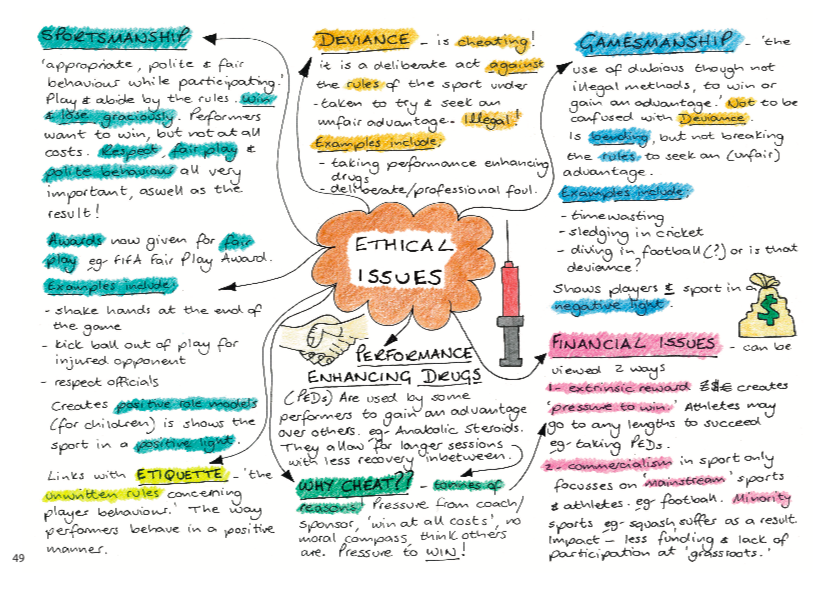 SPORTSMANSHIP
'appropriate, polite & fair
behaviour while participating.'
Play & abide by the rules. Win
& lose graciously. Performers
want to win, but not at all
costs. Respect, fair play &
polite behaviour all very
important, aswell as the
result!
Awards now given for fair
play eg- FIFA Fair Play Award.
Examples include:
- shake hands at the end of
the game
- kick ball out of play for
injured opponent
- respect officials
Creates positive role models
(for children) is shows the
sport in a positive light.
Links with ETIQUETTE - 'the
unwritten rules concerning
player behaviour.' The way
performers behave in a positive
manner.
DEVIANCE - is cheating!
it is a deliberate act against
the rules of the sport under
-taken to try & seek an
unfair advantage- Illegal!
Examples include;
- taking performance enhancing
drugs
- deliberate/professional foul.
ETHICAL
ISSUES
PERFORMANCE
ENHANCING DRUGS
(PEDs) Are used by some
performers to gain an advantage
over others. eg- Anabolic Steroids.
They allow for longer sessions
with less recovery inbetween.
WHY CHEAT?? - tonnes of
reasons! Pressure from coach/
sponsor, 'win at all costs', no
moral compass, think others
are. Pressure to WIN!
GAMESMANSHIP - 'the
use of dubious though not
illegal methods, to win or
gain an advantage.' Not to be
confused with Deviance.
Is bending, but not breaking
the rules to seek an (unfair)
advantage.
Examples include
- timewasting
- sledging in cricket
- diving in football(?) or is that
deviance?
Shows players & sport in a
negative light.
$
FINANCIAL ISSUES - can be
viewed 2 ways
1- extrinsic reward £$€ creates
'pressure to win.' Athletes may
go to any lengths to succeed
eg- taking PEDs.
2- commercialism in sport only
focusses on 'mainstream' sports
& athletes. eg- football. Minority
sports eg- squash, suffer as a result.
Impact - less funding & lack of
participation at 'grassroots.'
49